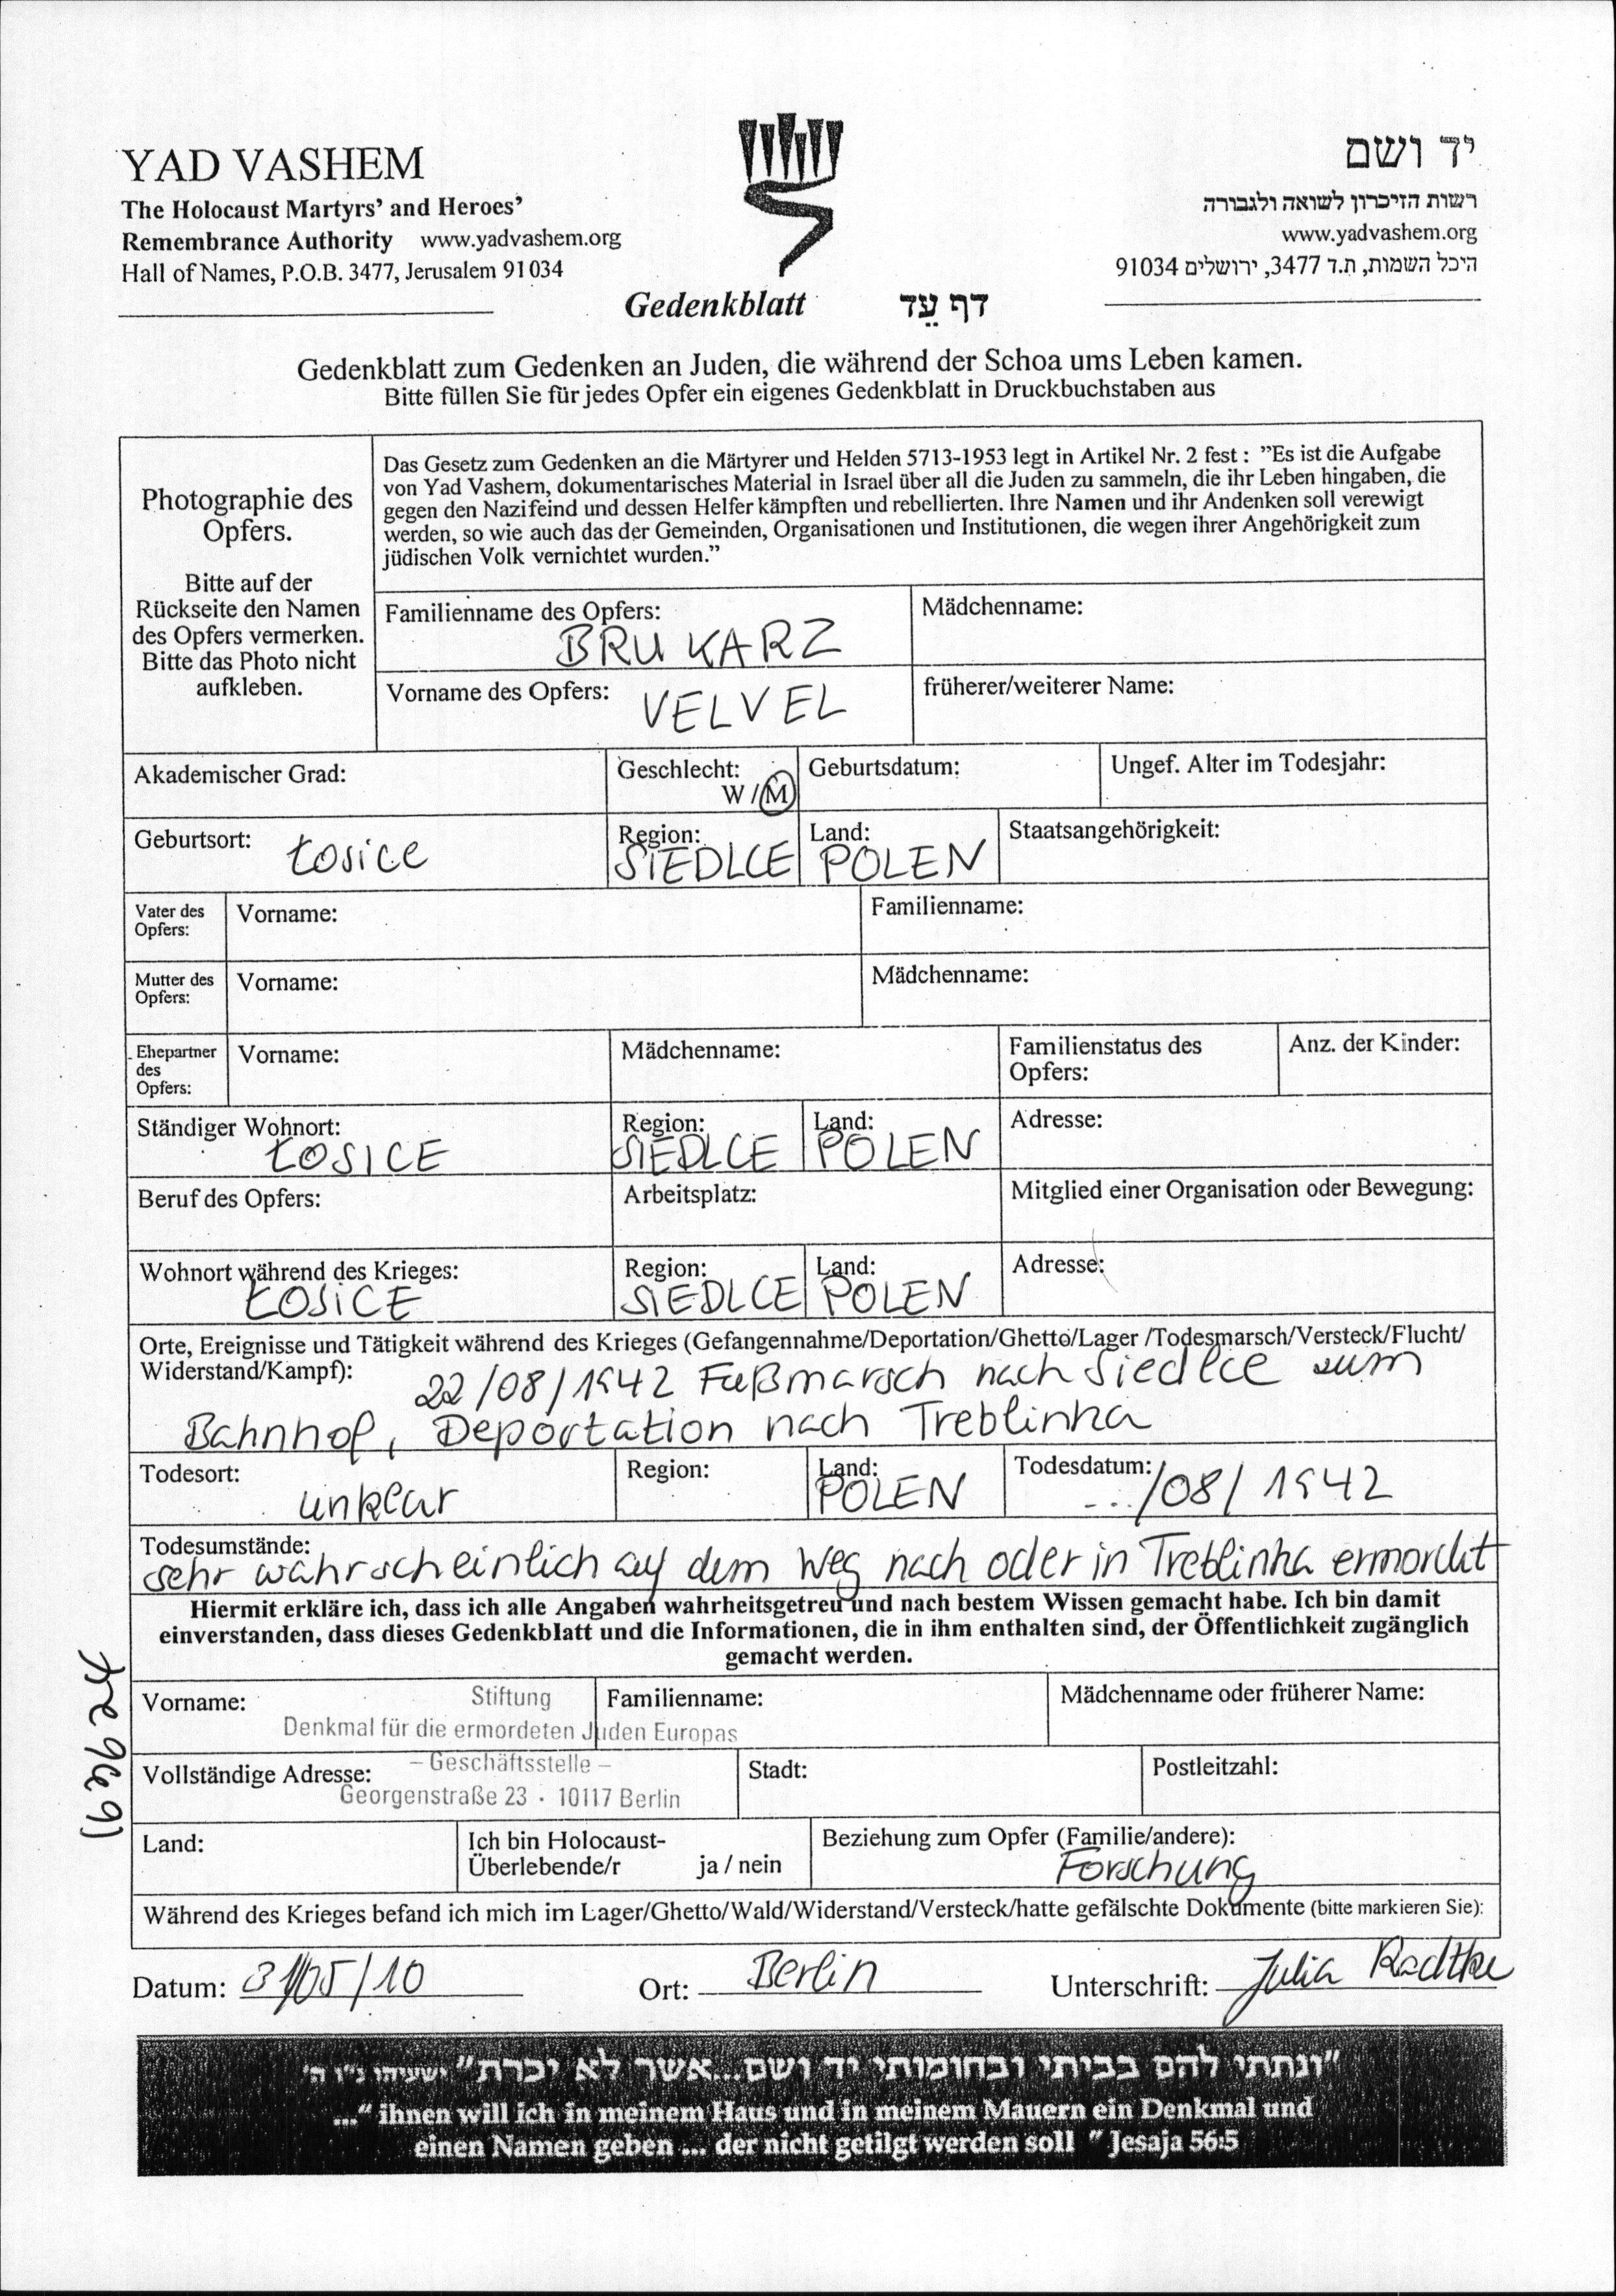 YAD VASHEM
The Holocaust Martyrs' and Heroes'
Remembrance Authority www.yadvashem.org
Hall of Names, P.O.B. 3477, Jerusalem 91034
יד ושם
רשות הזיכרון לשואה ולגבורה
www.yadvashem.org
היכל השמות, ת.ד 3477, ירושלים 91034
Gedenkblatt דף עֵד
Gedenkblatt zum Gedenken an Juden, die während der Schoa ums Leben kamen.
Bitte füllen Sie für jedes Opfer ein eigenes Gedenkblatt in Druckbuchstaben aus
Photographie des
Opfers.
Bitte auf der
Rückseite den Namen
des Opfers vermerken.
Bitte das Photo nicht
aufkleben.
Das Gesetz zum Gedenken an die Märtyrer und Helden 5713-1953 legt in Artikel Nr. 2 fest : "Es ist die Aufgabe
von Yad Vashem, dokumentarisches Material in Israel über all die Juden zu sammeln, die ihr Leben hingaben, die
gegen den Nazifeind und dessen Helfer kämpften und rebellierten. Ihre Namen und ihr Andenken soll verewigt
werden, so wie auch das der Gemeinden, Organisationen und Institutionen, die wegen ihrer Angehörigkeit zum
jüdischen Volk vernichtet wurden."
Familienname des Opfers: BRUKARZ
Mädchenname:
Vorname des Opfers: VELVEL
früherer/weiterer Name:
Akademischer Grad:
Geschlecht:
W / M
Geburtsdatum:
Ungef. Alter im Todesjahr:
Geburtsort: Łosice
Region: SIEDLCE
Land: POLEN
Staatsangehörigkeit:
Vater des
Opfers:
Vorname:
Familienname:
Mutter des
Opfers:
Vorname:
Mädchenname:
Ehepartner
des
Opfers:
Vorname:
Mädchenname:
Familienstatus des
Opfers:
Anz. der Kinder:
Ständiger Wohnort: ŁOSICE
Region: SIEDLCE
Land: POLEN
Adresse:
Beruf des Opfers:
Arbeitsplatz:
Mitglied einer Organisation oder Bewegung:
Wohnort während des Krieges: ŁOSICE
Region: SIEDLCE
Land: POLEN
Adresse:
Orte, Ereignisse und Tätigkeit während des Krieges (Gefangennahme/Deportation/Ghetto/Lager /Todesmarsch/Versteck/Flucht/
Widerstand/Kampf): 22/08/1942 Fußmarsch nach Siedlce zum
Bahnhof, Deportation nach Treblinka
Todesort: unklar
Region:
Land: POLEN
Todesdatum: .../08/1942
Todesumstände:
sehr wahrscheinlich auf dem Weg nach oder in Treblinka ermordet
Hiermit erkläre ich, dass ich alle Angaben wahrheitsgetreu und nach bestem Wissen gemacht habe. Ich bin damit
einverstanden, dass dieses Gedenkblatt und die Informationen, die in ihm enthalten sind, der Öffentlichkeit zugänglich
gemacht werden.
Vorname:
Familienname:
Mädchenname oder früherer Name:
Stiftung
Denkmal für die ermordeten Juden Europas
– Geschäftsstelle –
Georgenstraße 23 · 10117 Berlin
Vollständige Adresse:
Stadt:
Postleitzahl:
Land:
Ich bin Holocaust-
Überlebende/r ja / nein
Beziehung zum Opfer (Familie/andere):
Forschung
Während des Krieges befand ich mich im Lager/Ghetto/Wald/Widerstand/Versteck/hatte gefälschte Dokumente (bitte markieren Sie):
Datum: 31/05/10 Ort: Berlin Unterschrift: Julia Radtke
"ונתתי להם בביתי ובחומותי יד ושם...אשר לא יכרת" ישעיהו נ"ו ה'
..." ihnen will ich in meinem Haus und in meinem Mauern ein Denkmal und
einen Namen geben ... der nicht getilgt werden soll " Jesaja 56:5